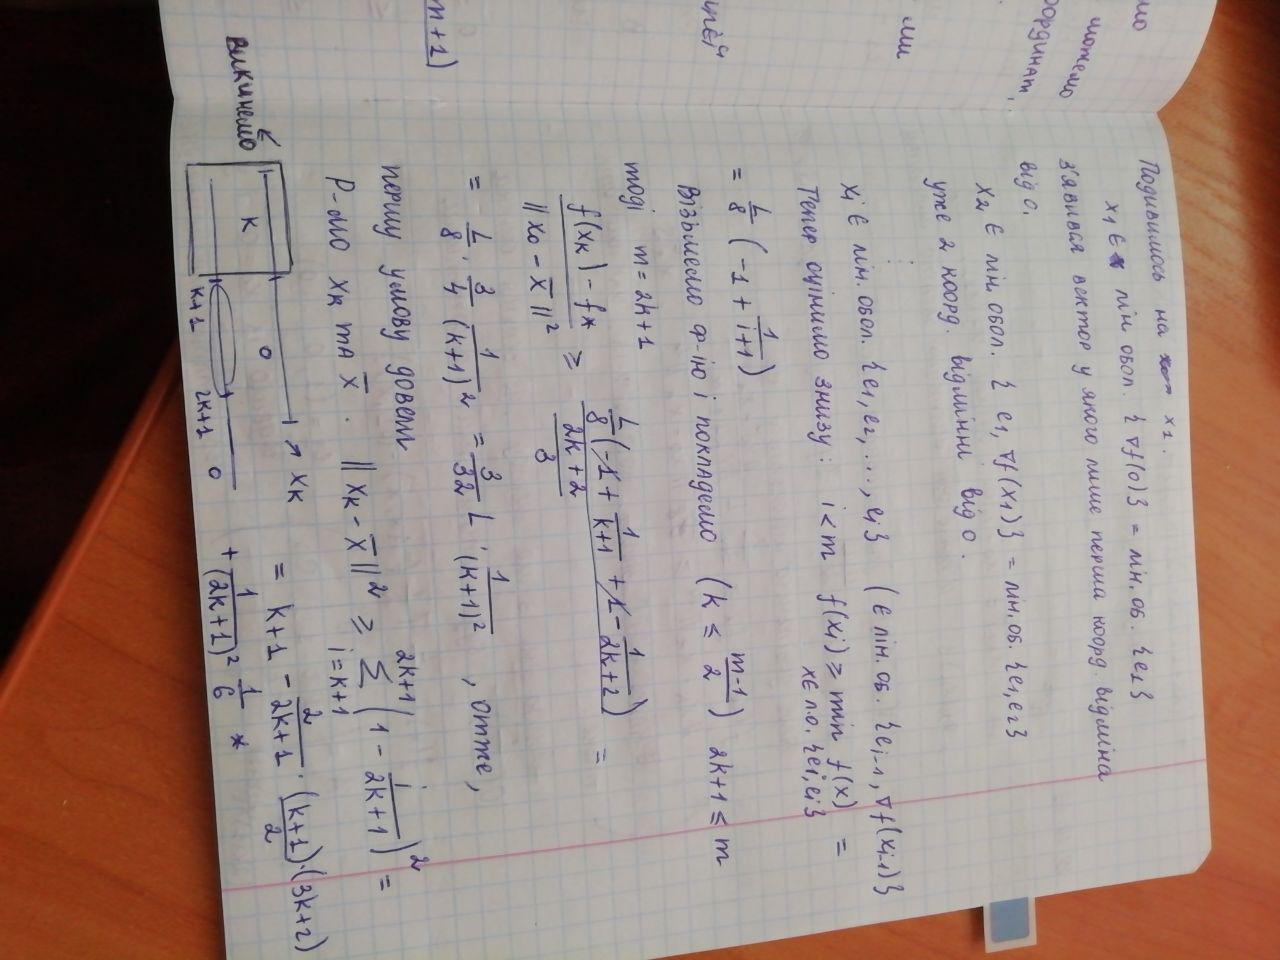 мо
можемо
оординат,
ми
цієй
m+1)
Подивимось на x₁.
x₁ ∈ лін. обол. {∇f(0)} = лін. об. {e₁}
з'явився вектор у якого лише перша коорд. відміна
від 0.
x₂ ∈ лін. обол. { e₁, ∇f(x₁)} = лін. об. {e₁, e₂}
уже 2 коорд. відмінні від 0.
⋮
xᵢ ∈ лін. обол. {e₁, e₂, ..., eᵢ} (∈ лін. об. {eᵢ₋₁, ∇f(xᵢ₋₁)}
Тепер оцінимо знизу: i < m f(xᵢ) ≥ min f(x) =
x∈ л.о. {eⁱ, eᵢ}
= L/8 (-1 + 1/(i+1))
Візьмемо ф-ію і покладемо (k ≤ (m-1)/2) 2k+1 ≤ m
тоді m = 2k+1
(f(x_k) - f*) / ||x₀ - x̅||² ≥ (L/8 (-1 + 1/(k+1) + 1 - 1/(2k+2))) / ((2k+2)/3) =
= L/8 · 3/4 · 1/(k+1)² = 3/32 L · 1/(k+1)² , отже,
першу умову довели
Р-мо x_k та x̅. ||x_k - x̅||² ≥ Σ_{i=k+1}^{2k+1} (1 - i/(2k+1))² =
= k+1 - 2/(2k+1) · (k+1)/2 · (3k+2)
+ 1/(2k+1)² 1/6 *
викинемо
k
0
→ x_k
k+1
2k+1
0